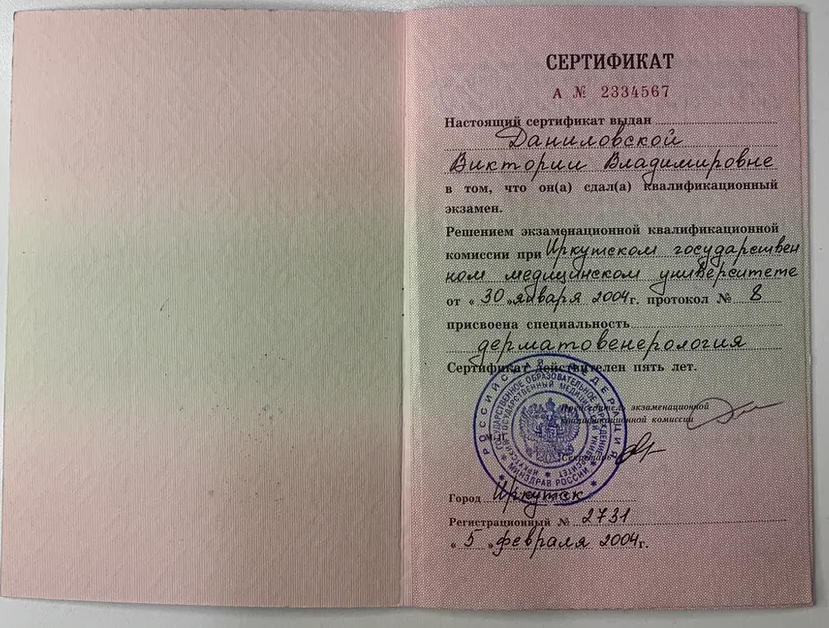 СЕРТИФИКАТ
А № 2334567
Настоящий сертификат выдан
Даниловской
Виктории Владимировне
в том, что он(а) сдал(а) квалификационный
экзамен.
Решением экзаменационной квалификационной
комиссии при Иркутском государствен
ном медицинском университете
от « 30 » января 2004г. протокол № 8
присвоена специальность
дерматовенерология
Сертификат действителен пять лет.
Председатель экзаменационной
квалификационной комиссии
М.П.
Секретарь
РОССИЙСКАЯ ФЕДЕРАЦИЯ
ГОСУДАРСТВЕННОЕ ОБРАЗОВАТЕЛЬНОЕ УЧРЕЖДЕНИЕ
ИРКУТСКИЙ ГОСУДАРСТВЕННЫЙ МЕДИЦИНСКИЙ УНИВЕРСИТЕТ
МИНЗДРАВ РОССИИ
Город Иркутск
Регистрационный № 2731
« 5 » февраля 2004г.